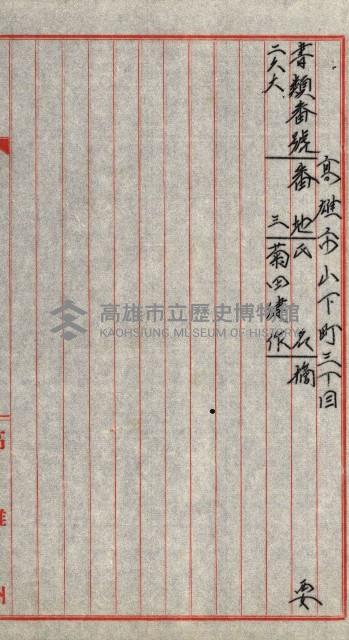 高雄市山下町三丁目
書類番號 番地 氏名 摘要
二八六 三 菊田
高雄市立歷史博物館
KAOHSIUNG MUSEUM OF HISTORY
高雄州